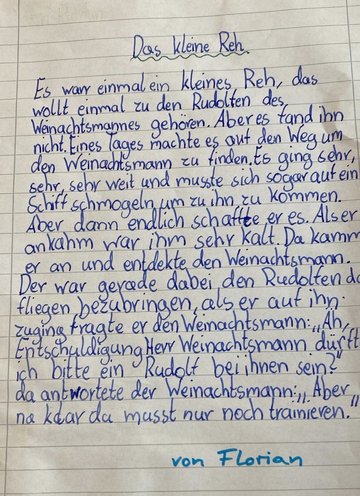 Das kleine Reh.
Es warr einmal ein kleines Reh, das
wollt einmal zu den Rudolfen des
Weinachtsmannes gehören. Aber es fand ihn
nicht. Eines Tages machte es auf den Weg um
den Weinachtsmann zu finden. Es ging sehr,
sehr, sehr weit und musste sich sogar auf ein
Schiff schmogeln um zu ihn zu kommen.
Aber dann endlich schaffte er es. Als er
ankahm war ihm sehr kalt. Da kamm
er an und entdekte den Weinachtsmann.
Der war gerade dabei den Rudolfen da
fliegen bezubringen, als er auf ihn
zuging fragte er den Weinachtsmann: „Ah,
Entschuldigung Herr Weinachtsmann dürft
ich bitte ein Rudolf bei ihnen sein?"
da antwortete der Weinachtsmann: „Aber
na klar da musst nur noch trainieren."
von Florian